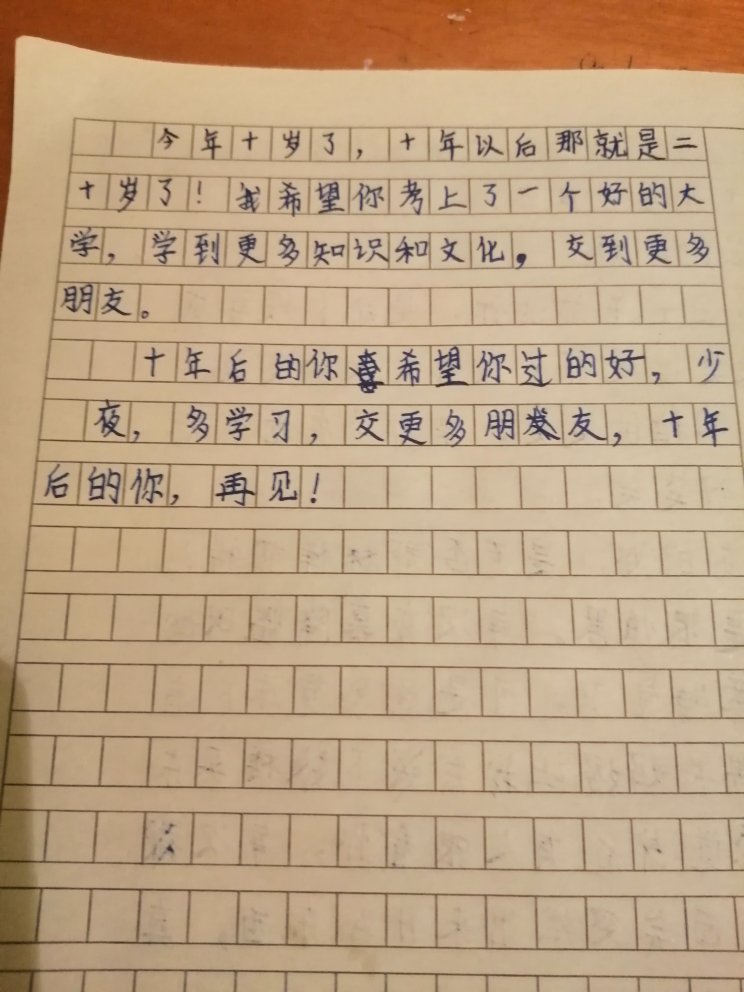 今年十岁了，十年以后那就是二
十岁了！我希望你考上了一个好的大
学，学到更多知识和文化，交到更多
朋友。
十年后的你希望你过的好，少
夜，多学习，交更多朋友，十年
后的你，再见！